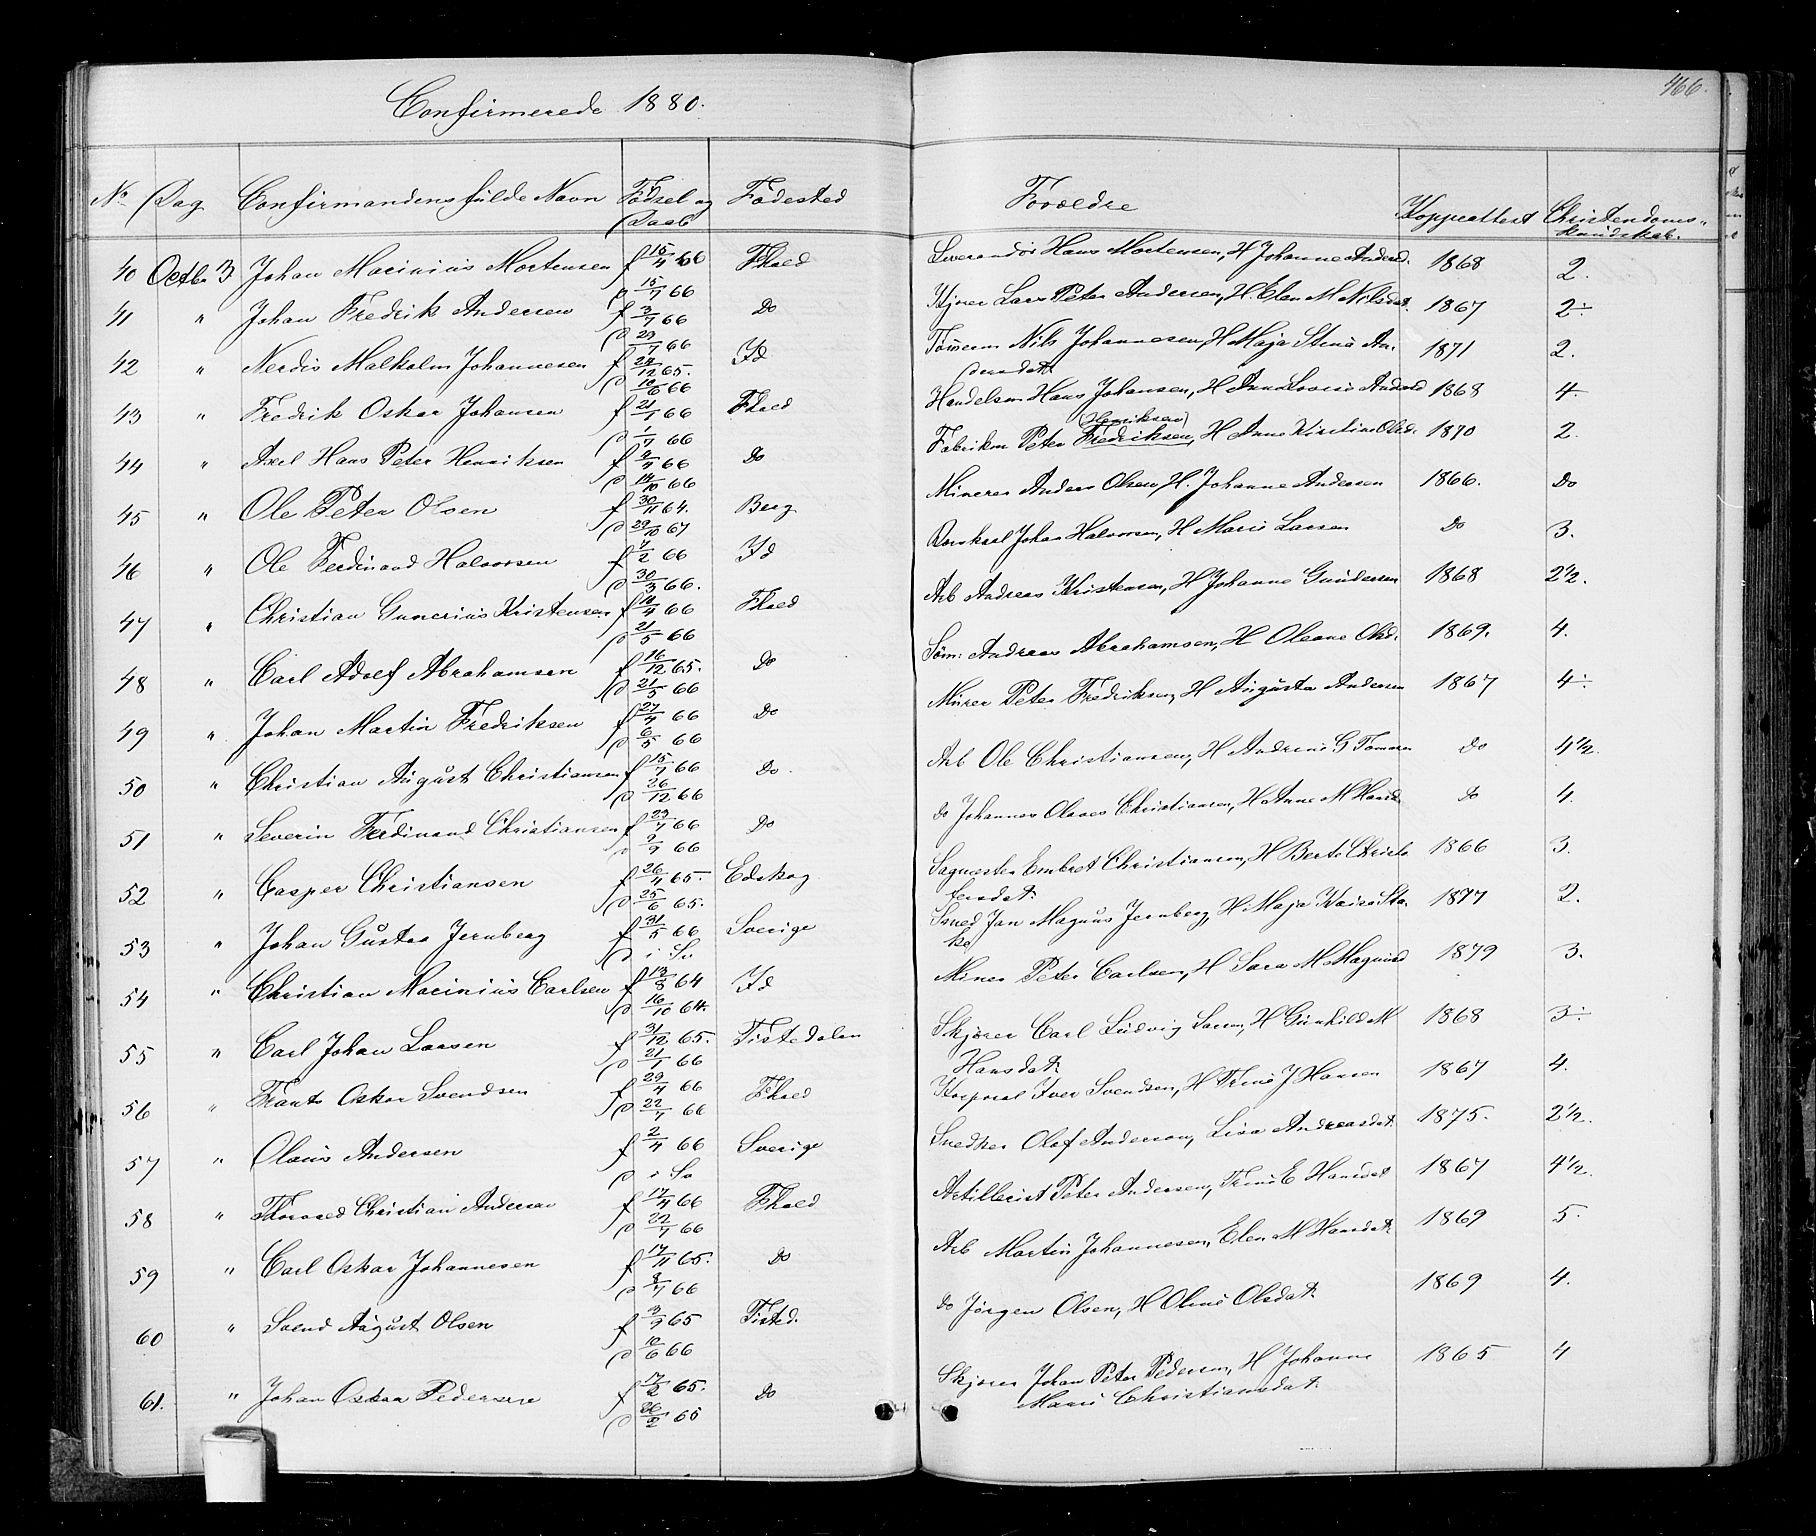 466.
Confirmerede 1880.
No Dag Confirmandens fulde Navn Fødsel og Daab Fødested Forældre Koppeattest Christendoms-kundskab.
40 Octbr 3 Johan Marinius Mortensen f 15/4 66 Fhald Hans Mortensen, H Johanne Andersd. 1868 2.
D 15/7 66
41 " Johan Fredrik Andersen f 2/7 66 Do Kjører Lars Peter Andersen, H. Elen M Nilsdat. 1867 2÷
D 29/7 66
42 " Malkolm Johannesen f 22/12 65. Id Tømerm Nils Johannesen, H Maja Stina An- 1871 2.
D 10/6 66 dersdat.
43 " Fredrik Oskar Johansen f 21/1 66 Fhald Handelsm Hans Johansen, H Anne Lovise Andersd 1868 4.
D 1/7 66 (Henriksen)
44 " Axel Hans Peter Henriksen f 2/7 66 Do Fabrikm Peter Fredriksen, H Anne Kirstine Olsd. 1870 2.
D 14/10 66
45 " Ole Peter Olsen f 30/11 64. Berg Minerer Anders Olsen, H. Johanne Andersen 1866. Do
D 29/10 67
46 " Ole Ferdinand Halvorsen f 7/2 66 Id Johan Halvorsen, H Marie Larsen Do 3.
D 30/3 66.
47 " Christian Gunerius Kristensen f 14/4 66 Fhald Arb Andreas Kristensen, H Johanne Gundersen 1868 2½.
D 21/5 66
48 " Carl Adolf Abrahamsen f 16/12 65. Do Søm: Andreas Abrahamsen, H Oleane Olsd. 1869. 4.
D 21/5 66
49 " Johan Martin Fredriksen f 27/4 66 Do Murer Peter Fredriksen, H Augusta Andersen 1867 4÷
D 6/5 66
50 " Christian August Christiansen f 15/7 66 Do. Arb Ole Christiansen, H Andrine G Tomesen Do 4½.
D 26/12 66
51 " Severin Ferdinand Christiansen f 23/7 66 Do Do Johannes Olaves Christiansen, H Anne M Hansd Do 4.
D 9/9 66
52 " Casper Christiansen f 26/4 65. Edskog Sagmester Embret Christiansen, H Berte Christo- 1866 3.
D 25/6 65. fersdat.
53 " Johan Gustav Jernberg f 31/5 66 Sverige Smed Jan Magnus Jernberg, H Maja Kaisa Sta- 1877 2.
D i Sv ke
54 " Christian Marinius Carlsen f 13/8 64 Id Miner Peter Carlsen, H Sara M Magnusd 1879 3.
D 16/10 64.
55 " Carl Johan Larsen f 31/12 65. Tistedalen Skjører Carl Ludvig Larsen, H Gunhild M 1868 3÷
D 21/1 66 Hansdat.
56 " Frants Oskar Svendsen f 29/4 66 Fhald Korporal Iver Svendsen, H Trine J Hansen 1867 4.
D 22/7 66
57 " Olaus Andersen f 2/4 66 Sverige Snedker Olof Anderson, Lisa Andreasdat. 1875. 2½.
D i Sv
58 " Thorvald Christian Andersen f 17/4 66 Fhald Artillerist Peter Andersen, Trine E Hansdat 1867 4½.
D 22/7 66
59 " Carl Oskar Johannesen f 17/11 65. Do Arb Martin Johannesen, Elen M Hansdat. 1869 5.
D 8/7 66
60 " Svend August Olsen f 3/9 65 Tisted. Do Jørgen Olsen, H Oline Olsdat. 1869 4.
D 10/6 66
61. " Johan Oskar Pedersen f 17/2 65. Do Skjører Johan Peter Pedersen, H Johanne 1865 4
D 26/2 65 Marie Christiansdat.